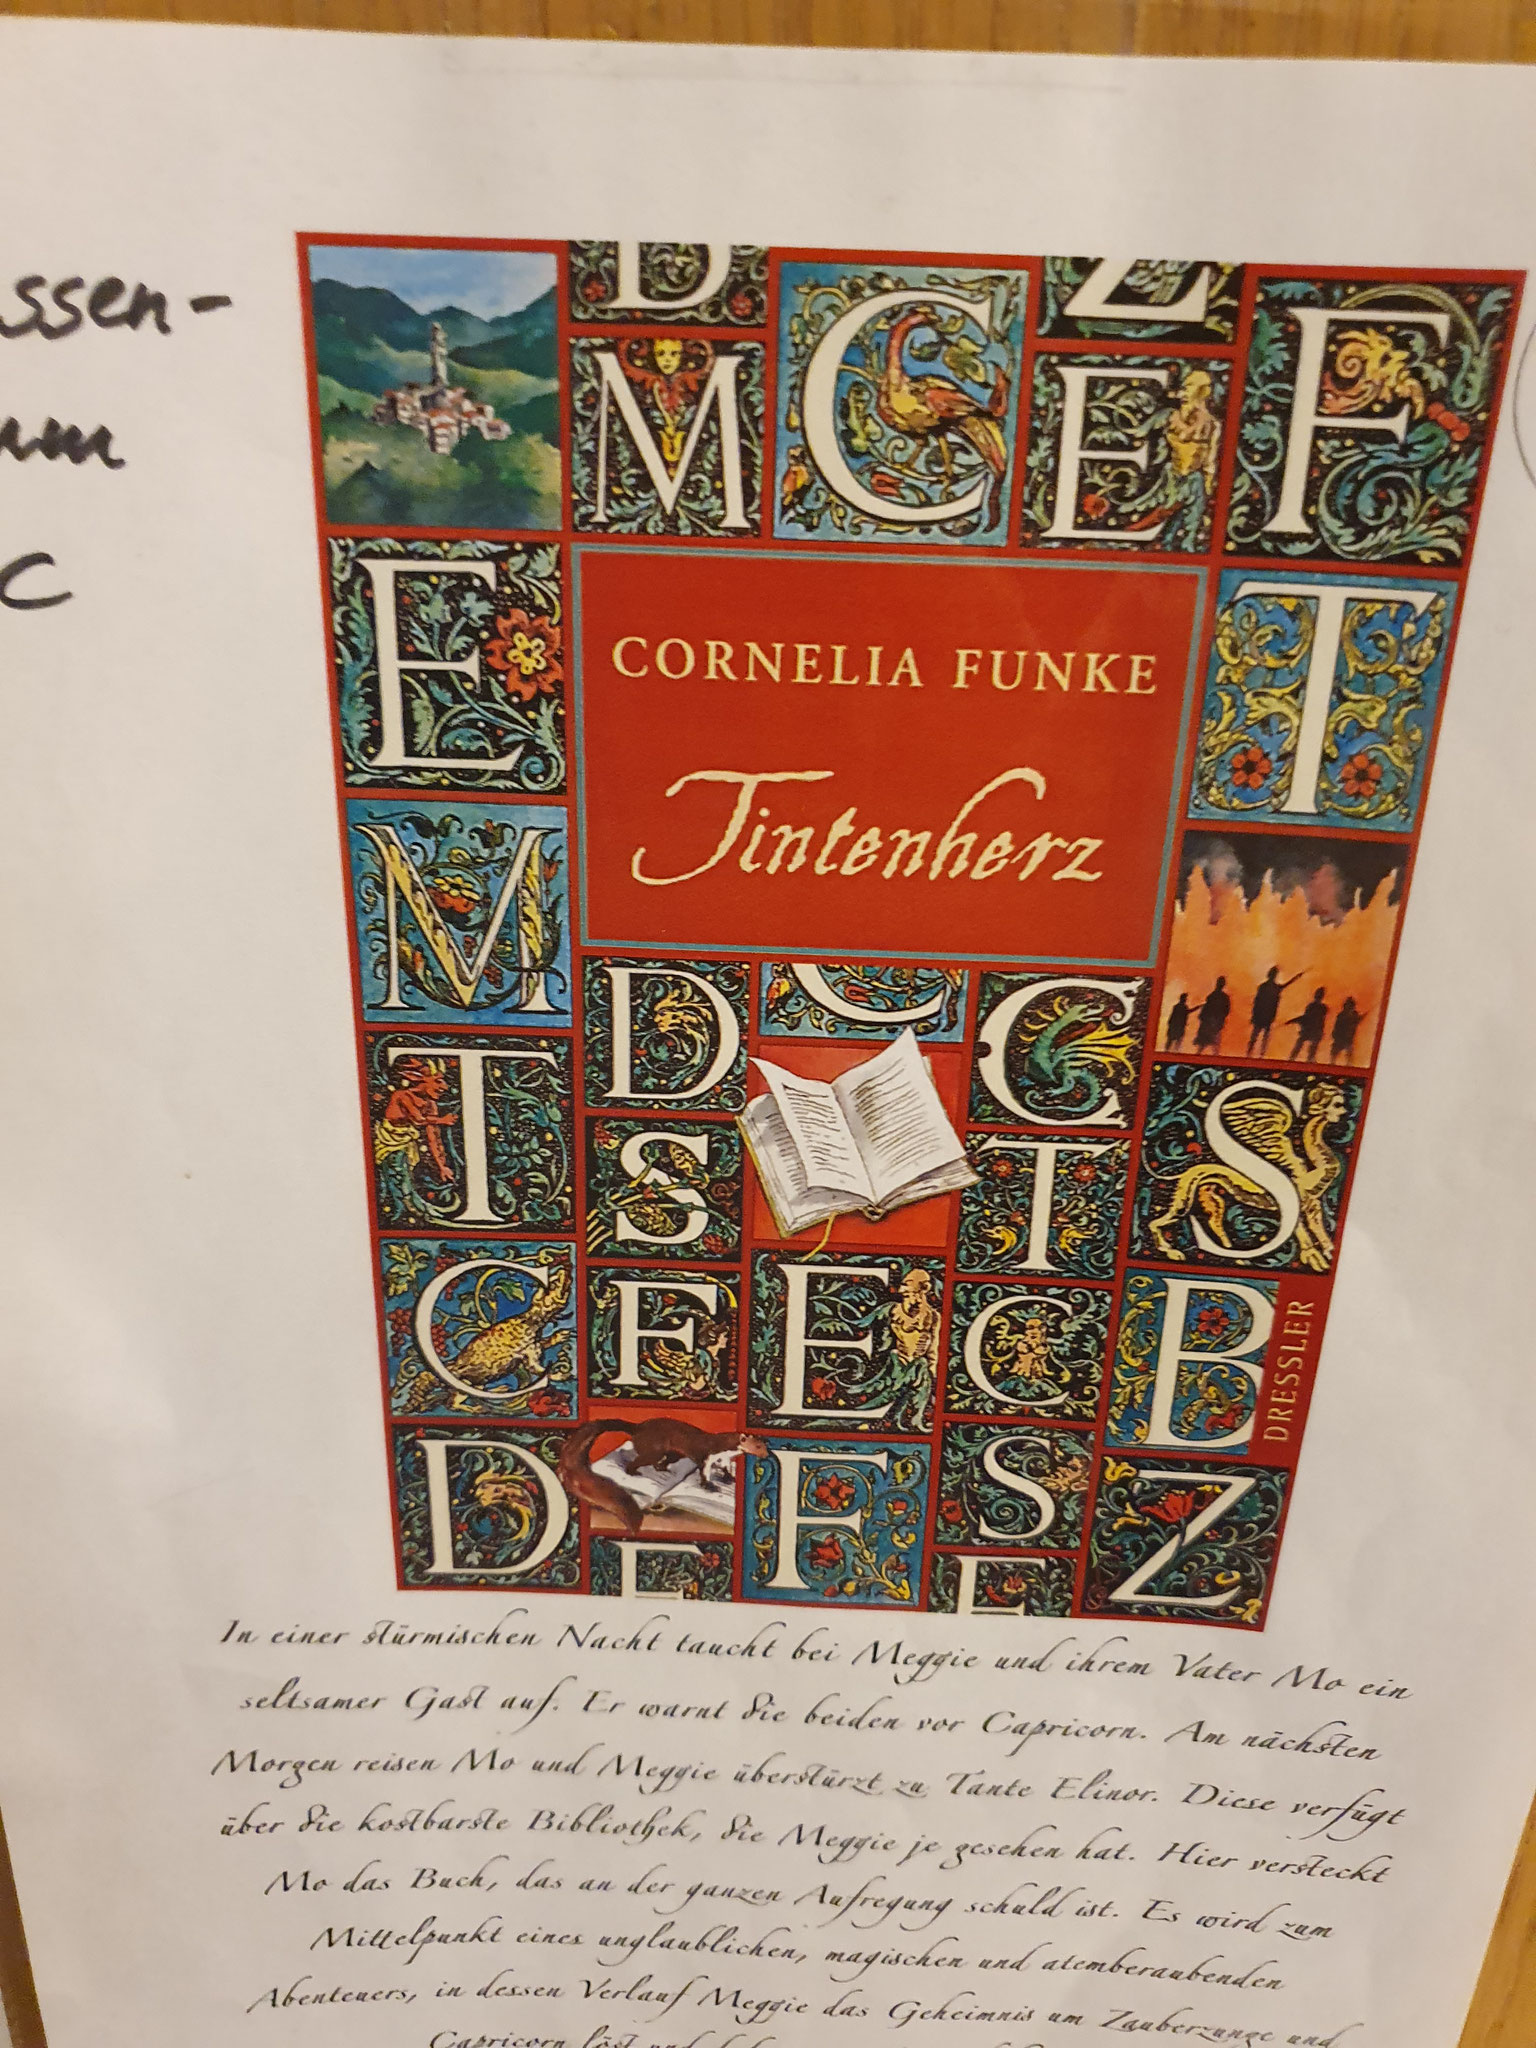 ssen-
um
C
D
Z
M
C
E
F
E
T
CORNELIA FUNKE
Tintenherz
M
D
C
C
T
S
T
S
C
F
E
C
B
DRESSLER
D
F
S
Z
In einer stürmischen Nacht taucht bei Meggie und ihrem Vater Mo ein
seltsamer Gast auf. Er warnt die beiden vor Capricorn. Am nächsten
Morgen reisen Mo und Meggie überstürzt zu Tante Elinor. Diese verfügt
über die kostbarste Bibliothek, die Meggie je gesehen hat. Hier versteckt
Mo das Buch, das an der ganzen Aufregung schuld ist. Es wird zum
Mittelpunkt eines unglaublichen, magischen und atemberaubenden
Abenteuers, in dessen Verlauf Meggie das Geheimnis um Zauberzunge und
Capricorn löst und